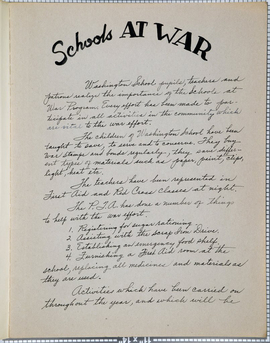 Schools AT WAR
Washington School pupils, teachers and
patrons realize the importance of the Schools at
War Program. Every effort has been made to par-
ticipate in all activities in the community which
are vital to the war effort.
The children of Washington School have been
taught to save, to serve and to conserve. They buy
war stamps and bonds regularly; they save differ-
ent types of materials such as paper, paint, clips,
light, heat etc.
The teachers have been represented in
First Aid and Red Cross classes at night.
The P.T.A. has done a number of things
to help with the war effort.
1. Registering for sugar rationing
2. Assisting with the scrap Iron Drive.
3. Establishing an emergency food shelf.
4. Furnishing a First Aid room at the
school, replacing all medicines and materials as
they are used.
Activities which have been carried on
throughout the year, and which will be